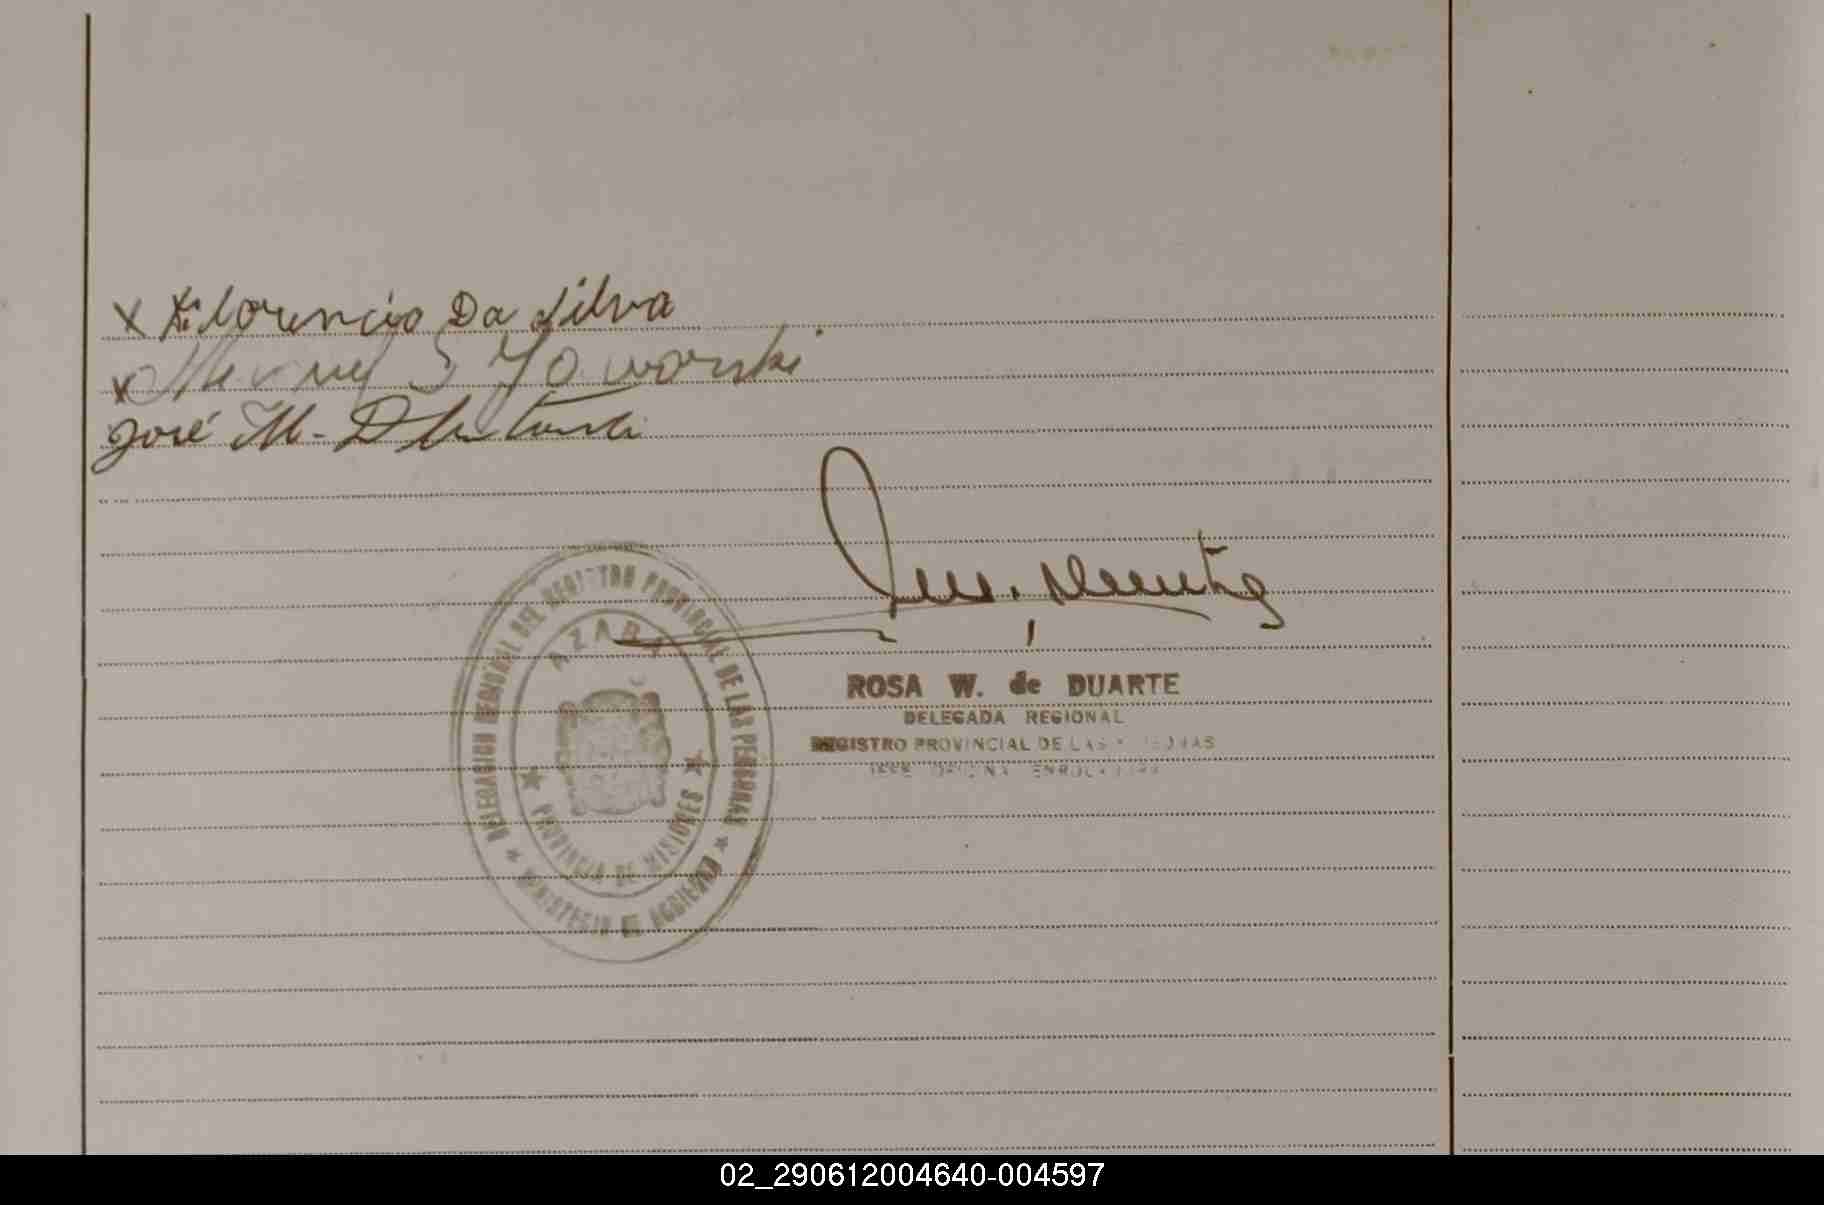 x Florencio Da Silva
x Miguel S Yaworski
José M.
DELEGACION REGIONAL DEL REGISTRO PROVINCIAL DE LAS PERSONAS
AZARA
PROVINCIA DE MISIONES
MINISTERIO DE GOBIERNO
ROSA W. de DUARTE
DELEGADA REGIONAL
REGISTRO PROVINCIAL DE LAS PERSONAS
JEFE OFICINA ENROLADORA
02_290612004640-004597